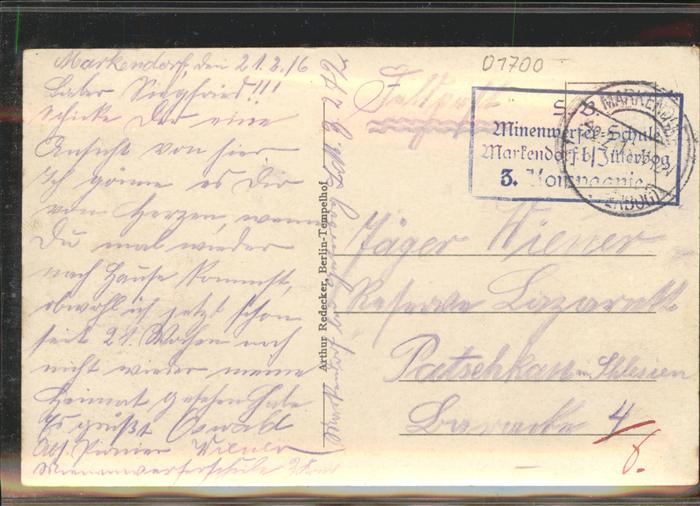 Markendorf, den 21.3.16
Lieber Siegfried!!!
Schicke Dir eine
Ansicht von hier
Ich gönne es Dir
von Herzen, wenn
Du mal wieder
nach Hause kommst,
obwohl ich jetzt schon
seit 21 Wochen noch
nicht wieder meine
Heimat gesehen habe.
Es grüßt Oswald
Abs. Pionier Wiener
Minenwerferschule
Markendorf
Arthur Redecker, Berlin-Tempelhof
01700
Feldpost
Minenwerfer-Schule
Markendorf b/Jüterbog
3. Kompagnie
MARKENDORF
Jäger Wiener
Reserve Lazarett
Patschkau in Schlesien
Baracke 4
8.